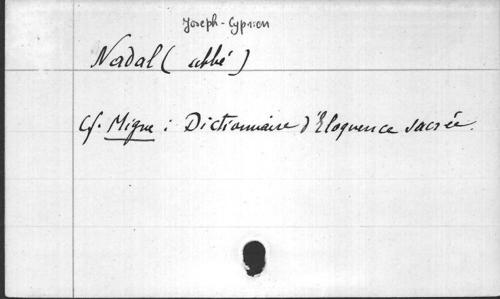 Joseph-Cyprien
Nadal (abbé)
Cf. Migne : Dictionnaire d'Eloquence sacrée.